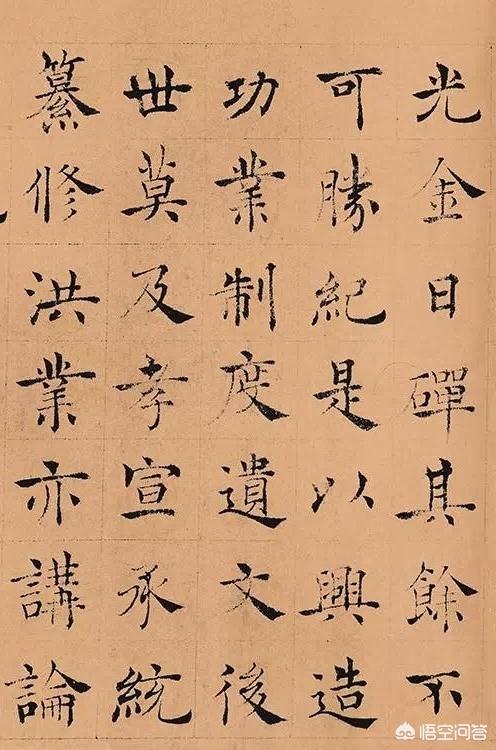 光金日磾其餘不
可勝紀是以興造
功業制度遺文後
世莫及孝宣承統
纂修洪業亦講論
悟空问答